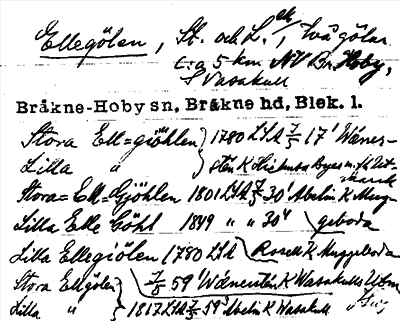 Ellegölen, St. och L. ek, två gölar
c:a 5 km NV Br. Hoby,
S Vasakull
Bråkne-Hoby sn, Bråkne hd, Blek. l.
Stora Ell=giöhlen } 1780 LSA 7/5 17' Wånes-
Lilla " sten K Hichusa Byes m. fl. Ut-
Stora=Ell=Gjöhlen 1801 LSA 30' Abelin K Mug-
Lilla Elle Göhl 1849 " " 30" geboda
Lilla Ellegiölen 1780 LSA Rosell K Muggeboda
Stora Ellgölen } 59' Wånesten K Wasakulls Utm
Lilla " 1817 LSA 59' Abelin K Wasakull